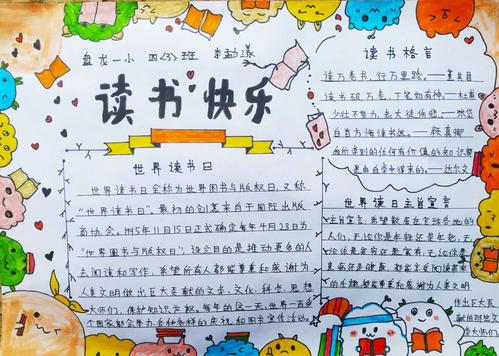 盘龙一小 四〈3〉班 李勐漾
读书快乐
世界读书日
世界读书日全称为世界图书与版权日,又称
"世界图书日"。最初的创意来自于国际出版
商协会。1995年11月15日正式确定每年4月23日为
"世界图书与版权日",设立目的是推动更多的人
去阅读和写作,希望所有人都能尊重和感谢为
人类文明做出巨大贡献的文学、文化、科学、思想
大师们,保护知识产权。每年的这一天,世界一百多
个国家都会举办各种各样的庆祝和图书宣传活动。
读书格言
读万卷书,行万里路。——董其昌
读书破万卷,下笔如有神。——杜甫
少壮不努力,老大徒伤悲。
白首方悔读书迟。——颜真卿
我所学到的任何有价值的知识都
是由自学中得来的。——达尔文
世界读书日主旨宣言
主旨宣言:希望散居在全球各地的
人们,无论你是年老还是年轻,无
论你是贫穷还是富有,无论你是
患病还是健康,都能享受阅读带来
的乐趣,都能尊重和感谢为人类文明
作出巨大贡
献的那些文
大师们,